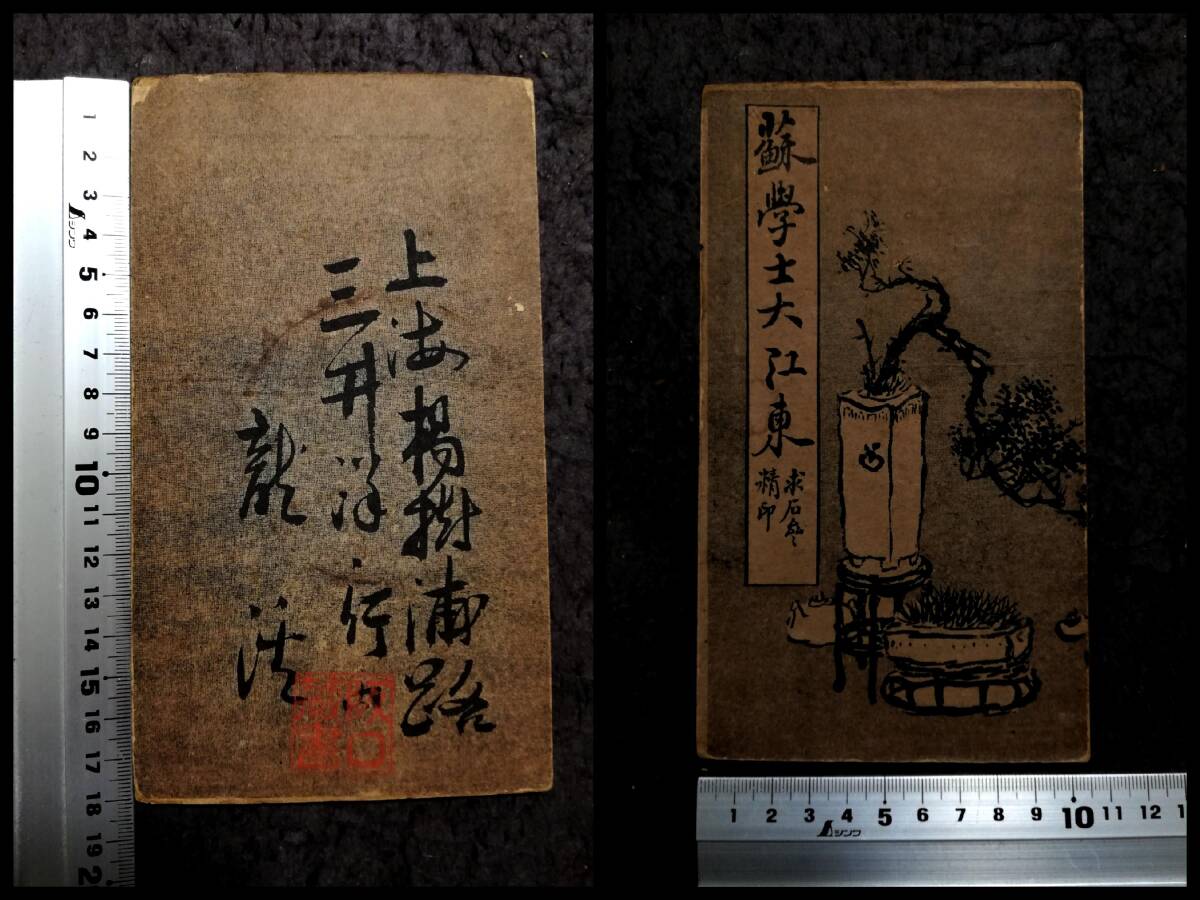 上海楊樹浦路
三井洋行内
龍
1 2 3 4 5 6 7 8 9 10 11 12 13 14 15 16 17 18 19 2
シンワ
蘇學士大江東
求石
精印
1 2 3 4 5 6 7 8 9 10 11 12 1
シンワ